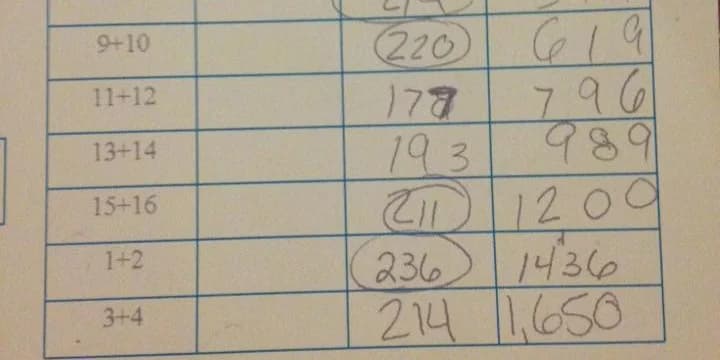 9+10 220 619
11+12 177 796
13+14 193 989
15+16 211 1200
1+2 236 1436
3+4 214 1,650